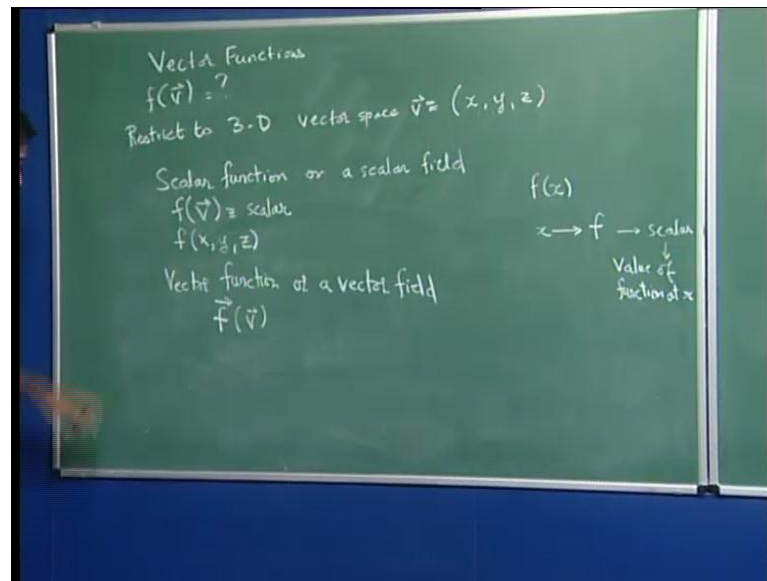 Vector Functions
f(v⃗) = ?
Restrict to 3-D vector space v⃗ = (x, y, z)
Scalar function or a scalar field
f(v⃗) = scalar
f(x, y, z)
Vector function or a vector field
f⃗(v⃗)
f(x)
x → f → scalar
↓
Value of
function at x